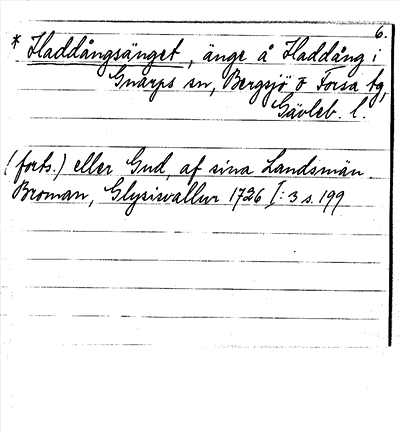 6.
* Haddångsänget, änge å Haddång i
Gnarps sn, Bergsjö o Forsa tg,
Gävleb. l.
(forts.) eller Gud, af sina Landsmän.
Broman, Glysisvallur 1726 I: 3 s. 199